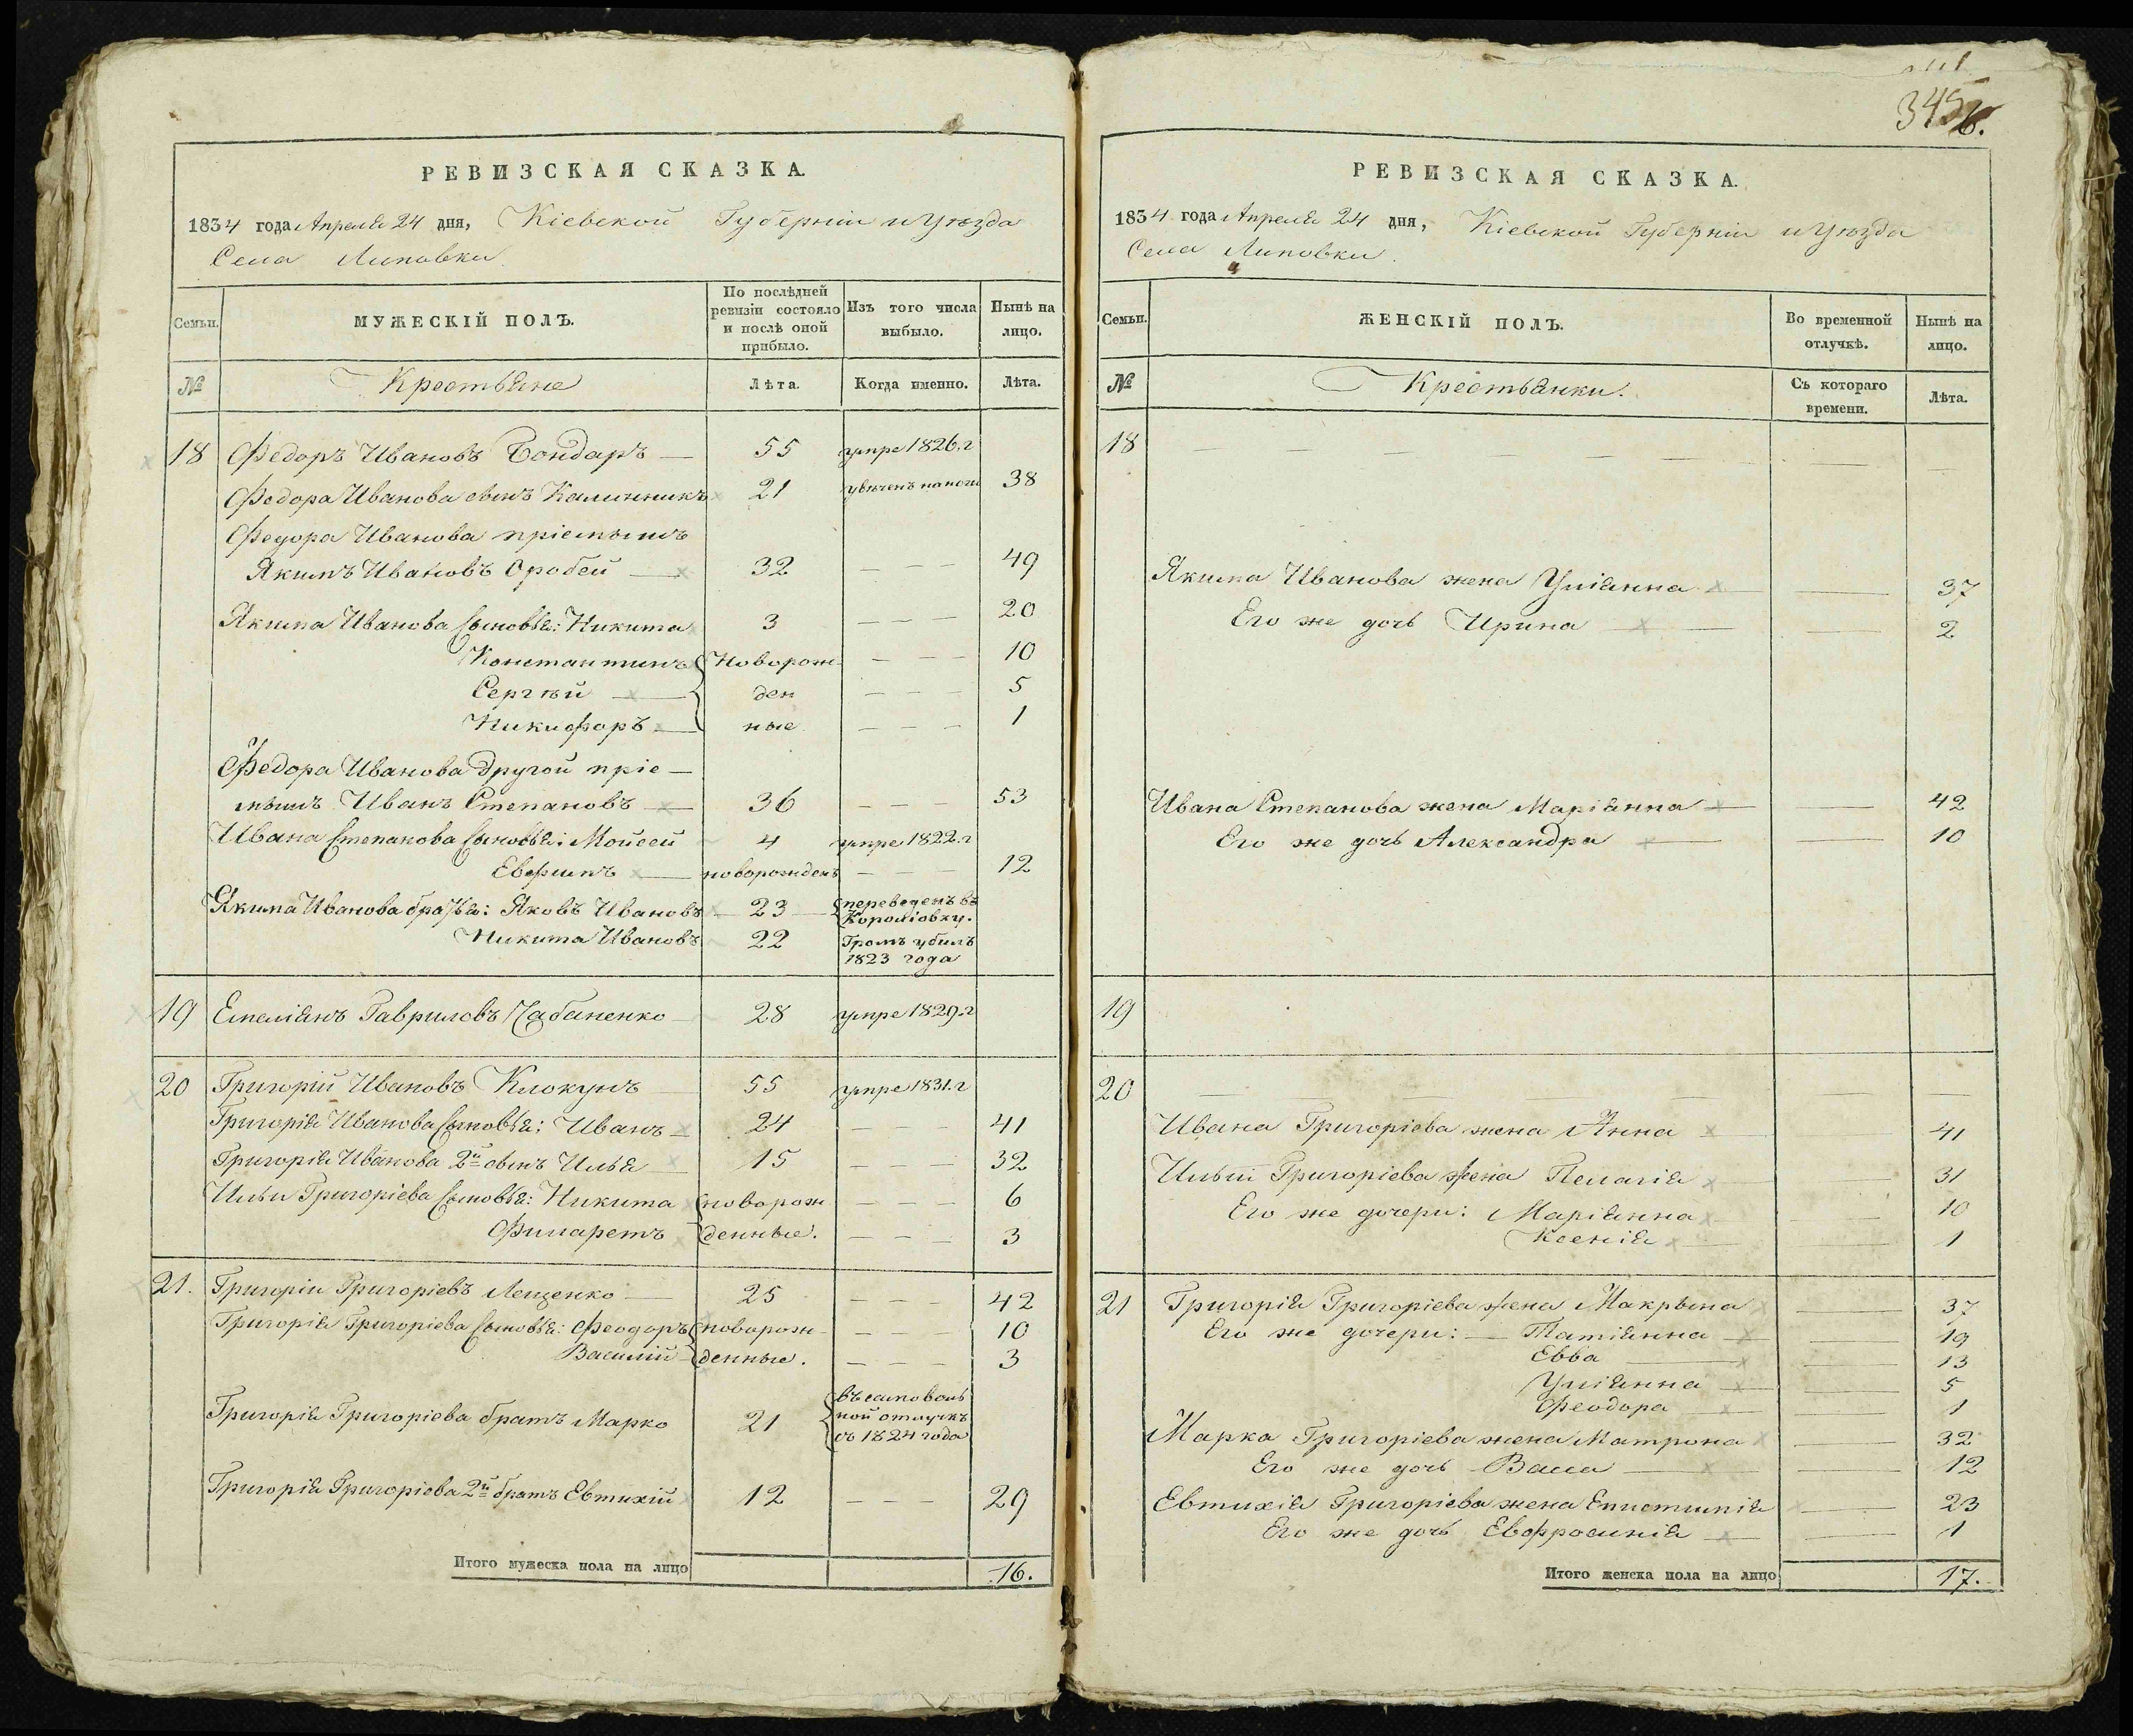 345
6.
РЕВИЗСКАЯ СКАЗКА.
1834 года Апреля 24 дня, Кіевской Губерніи и Уѣзда
Села Липовки
Семьи.
МУЖЕСКІЙ ПОЛЪ.
По послѣдней ревизіи состояло и послѣ оной прибыло.
Изъ того числа выбыло.
Нынѣ на лицо.
№
Крестьяне
Лѣта.
Когда именно.
Лѣта.
18 Федоръ Ивановъ Бондаръ — 55 умре 1826.г
Федора Иванова сынъ Калинникъ 21 увѣченъ на ноги 38
Федора Иванова пріемышъ
Якимъ Ивановъ Оробей — 32 — — — 49
Якима Иванова сыновья: Никита 3 — — — 20
Константинъ новорож — — — 10
Сергѣй — ден — — — 5
Никифоръ — ные — — — 1
Федора Иванова другой пріе—
мышъ Иванъ Степановъ — 36 — — — 53
Ивана Степанова сыновья: Мойсей 4 умре 1822.г
Евфимъ — новорожденъ — — — 12
Якима Иванова братья: Яковъ Ивановъ — 23 — переведенъ въ
Королiовку.
Никита Ивановъ 22 Громъ убилъ
1823 года
19 Емеліянъ Гавриловъ Чабаненко 28 умре 1829.г
20 Григорій Ивановъ Клокунъ 55 умре 1831.г
Григорія Иванова сыновья: Иванъ — 24 — — — 41
Григорія Иванова 2й сынъ Илья 15 — — — 32
Ильи Григоріева сыновья: Никита новорож — — — 6
Филаретъ денные. — — — 3
21. Григоріи Григоріевъ Лещенко — 25 — — — 42
Григорія Григоріева сыновья: Феодоръ новорож — — — 10
Василій денные. — — — 3
Григорія Григоріева братъ Марко 21 въ самоволь
ной отлучкѣ
съ 1824 года
Григорія Григоріева 2й братъ Евтихій 12 — — — 29
Итого мужеска пола на лицо 16.
РЕВИЗСКАЯ СКАЗКА.
1834 года Апреля 24 дня, Кіевской Губерніи и Уѣзда
Села Липовки.
Семьи.
ЖЕНСКІЙ ПОЛЪ.
Во временной отлучкѣ.
Нынѣ на лицо.
№
Крестьянки.
Съ котораго времени.
Лѣта.
18 — — — — — — — —
Якима Иванова жена Уліянна — — 37
Его же дочь Ирина — — 2
Ивана Степанова жена Маріянна — — 42
Его же дочь Александра — — 10
19
20 — — — — — — — —
Ивана Григоріева жена Анна — — 41
Ильи Григоріева жена Пелагія — — 31
Его же дочери: Маріянна — — 10
Ксенія — — 1
21 Григорія Григоріева жена Макрына — 37
Его же дочери: — Татіянна — — 19
Евва — — 13
Уліянна — — 5
Феодора — — 1
Марка Григоріева жена Матрона — 32
Его же дочь Васса — — 12
Евтихія Григоріева жена Епистимія — 23
Его же дочь Евфросинія — — 1
Итого женска пола на лицо 17.